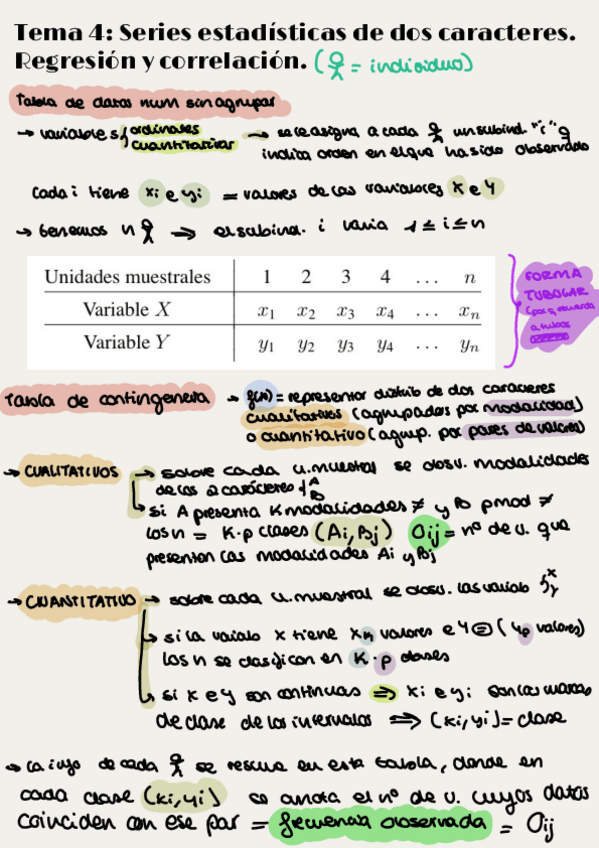 Tema 4: Series estadísticas de dos caracteres.
Regresión y correlación. ( = individuo)
Tabla de datos num sin agrupar
→ variables ordinales
cuantitativas → se le asigna a cada un subind. "i" q
indica orden en el que ha sido observado
Cada i tiene xi e yi = valores de las variables x e y
→ Tenemos n ⇒ el subind. i varia 1 ≤ i ≤ n
Unidades muestrales 1 2 3 4 ... n
Variable X x1 x2 x3 x4 ... xn
Variable Y y1 y2 y3 y4 ... yn
FORMA
TUBULAR
(porq recuerda
a tubos
Tabla de contingencia → f(x) = representar distrib de dos caracteres
cualitativos (agrupados por modalidad)
o cuantitativo (agrup. por pares de valores)
→ CUALITATIVOS → sobre cada u.muestral se obsv. modalidades
de los 2 carácteres A
B
si A presenta K modalidades ≠ y B p mod ≠
los n = K·p clases (Ai, Bj) Oij = nº de u. que
presentan las modalidades Ai y Bj
→ CUANTITATIVO → sobre cada u.muestral se obsv. las variab x
y
→ si la variab x tiene xk valores e y = (yp valores)
los n se clasifican en K·p clases
→ si x e y son continuas ⇒ xi e yi son las marcas
de clase de los intervalos ⇒ (xi, yi) = clase
→ la info de cada se resume en esta tabla, donde en
cada clase (xi, yi) se anota el nº de u. cuyos datos
coinciden con ese par = frecuencia observada = Oij